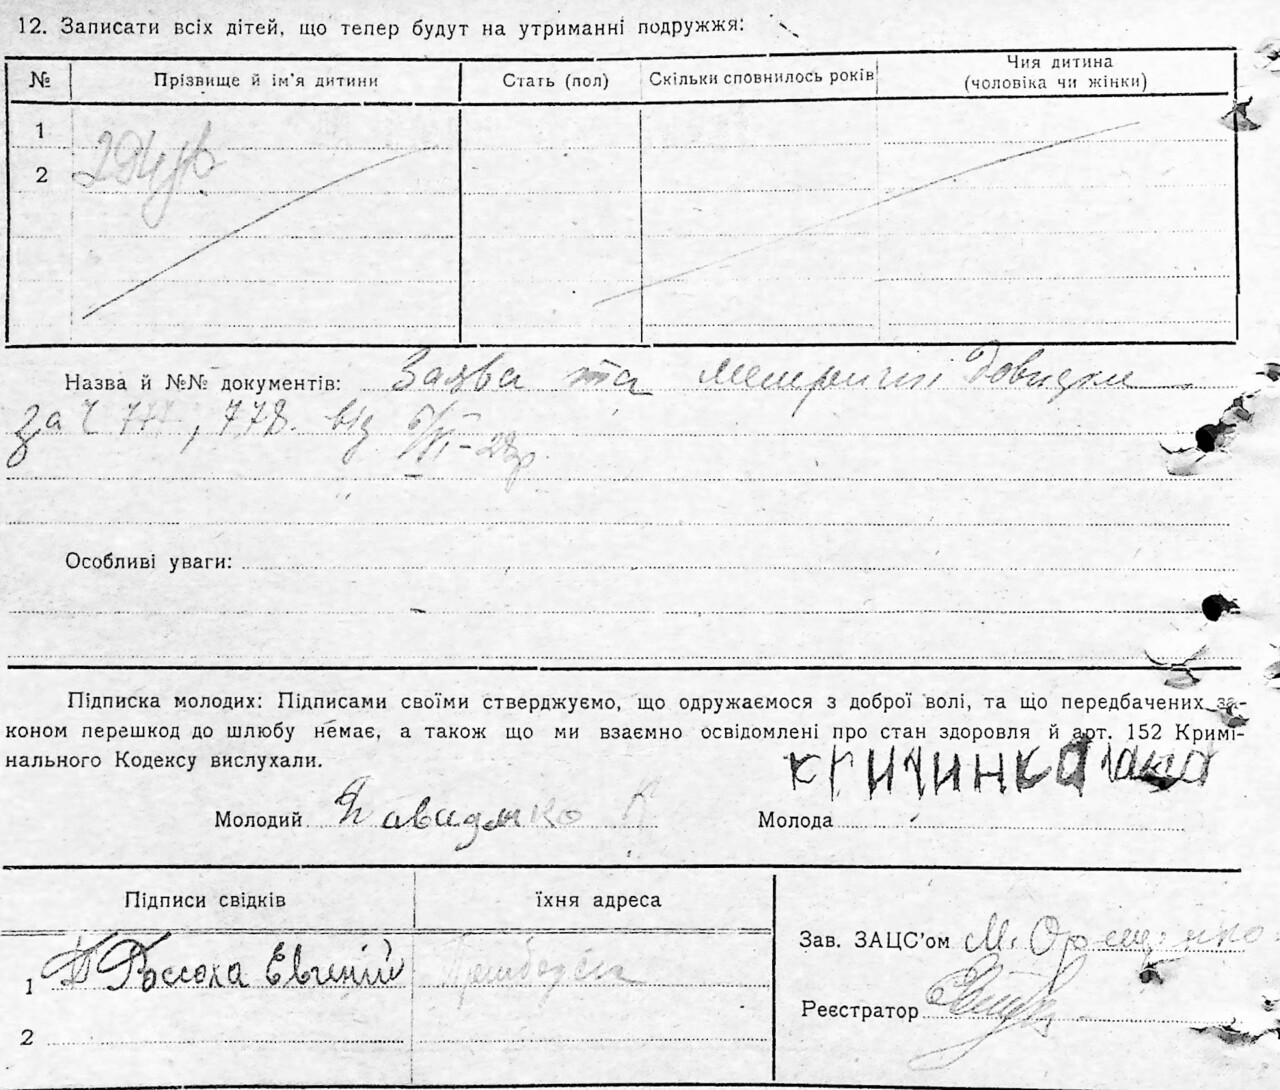 12. Записати всіх дітей, що тепер будут на утриманні подружжя:
№ Прізвище й ім'я дитини Стать (пол) Скільки сповнилось років Чия дитина
(чоловіка чи жінки)
1
2
Назва й №№ документів: Заява та метричні довідки
за Ч 777, 778. від
Особливі уваги:
Підписка молодих: Підписами своїми стверджуємо, що одружаємося з доброї волі, та що передбачених за-
коном перешкод до шлюбу немає, а також що ми взаємно освідомлені про стан здоровля й арт. 152 Кримі-
нального Кодексу вислухали.
Молодий Молода
Підписи свідків їхня адреса
Зав. ЗАЦС'ом М.
1 Євгеній
Реєстратор
2